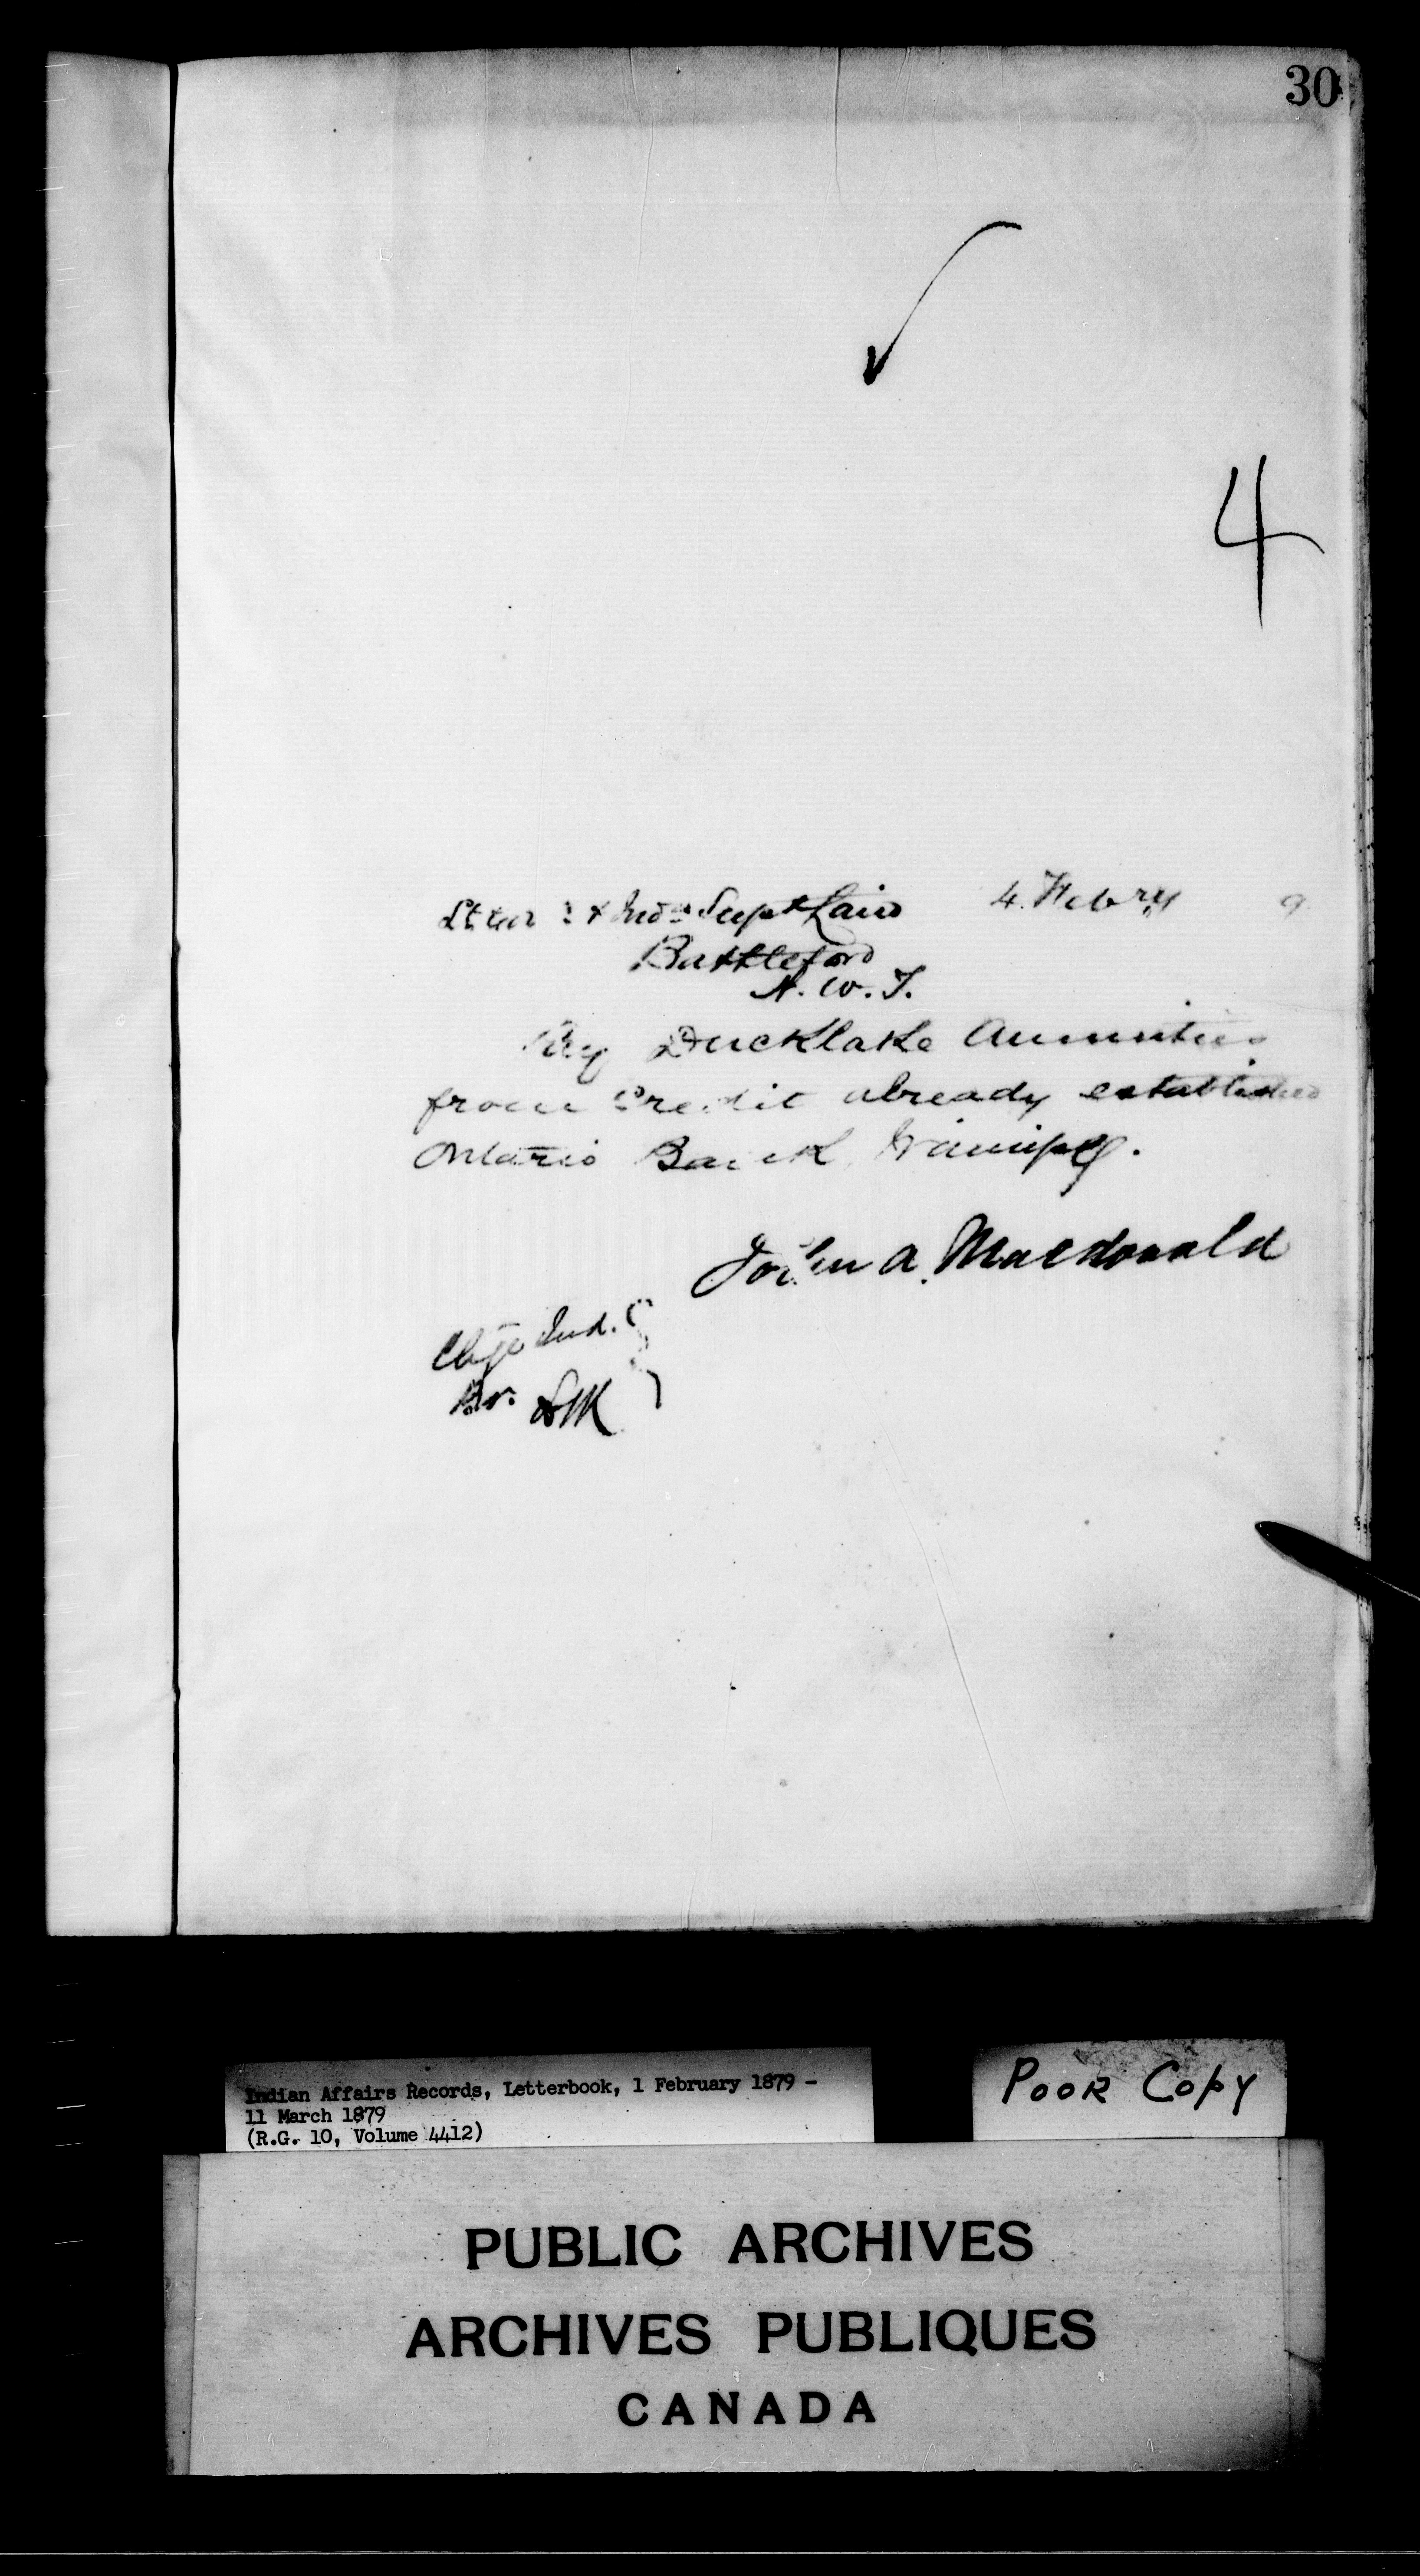 30
4
Lt. Gov. & Ind. Supt Laird 4. Febry 9
Battleford
N. W. T.
Pay Ducklake Annuities
from Credit already established
Ontario Bank Winnipeg.
John A. Macdonald
Chge Ind.
Br.
Indian Affairs Records, Letterbook, 1 February 1879 -
11 March 1879
(R.G. 10, Volume 4412)
POOR COPY
PUBLIC ARCHIVES
ARCHIVES PUBLIQUES
CANADA